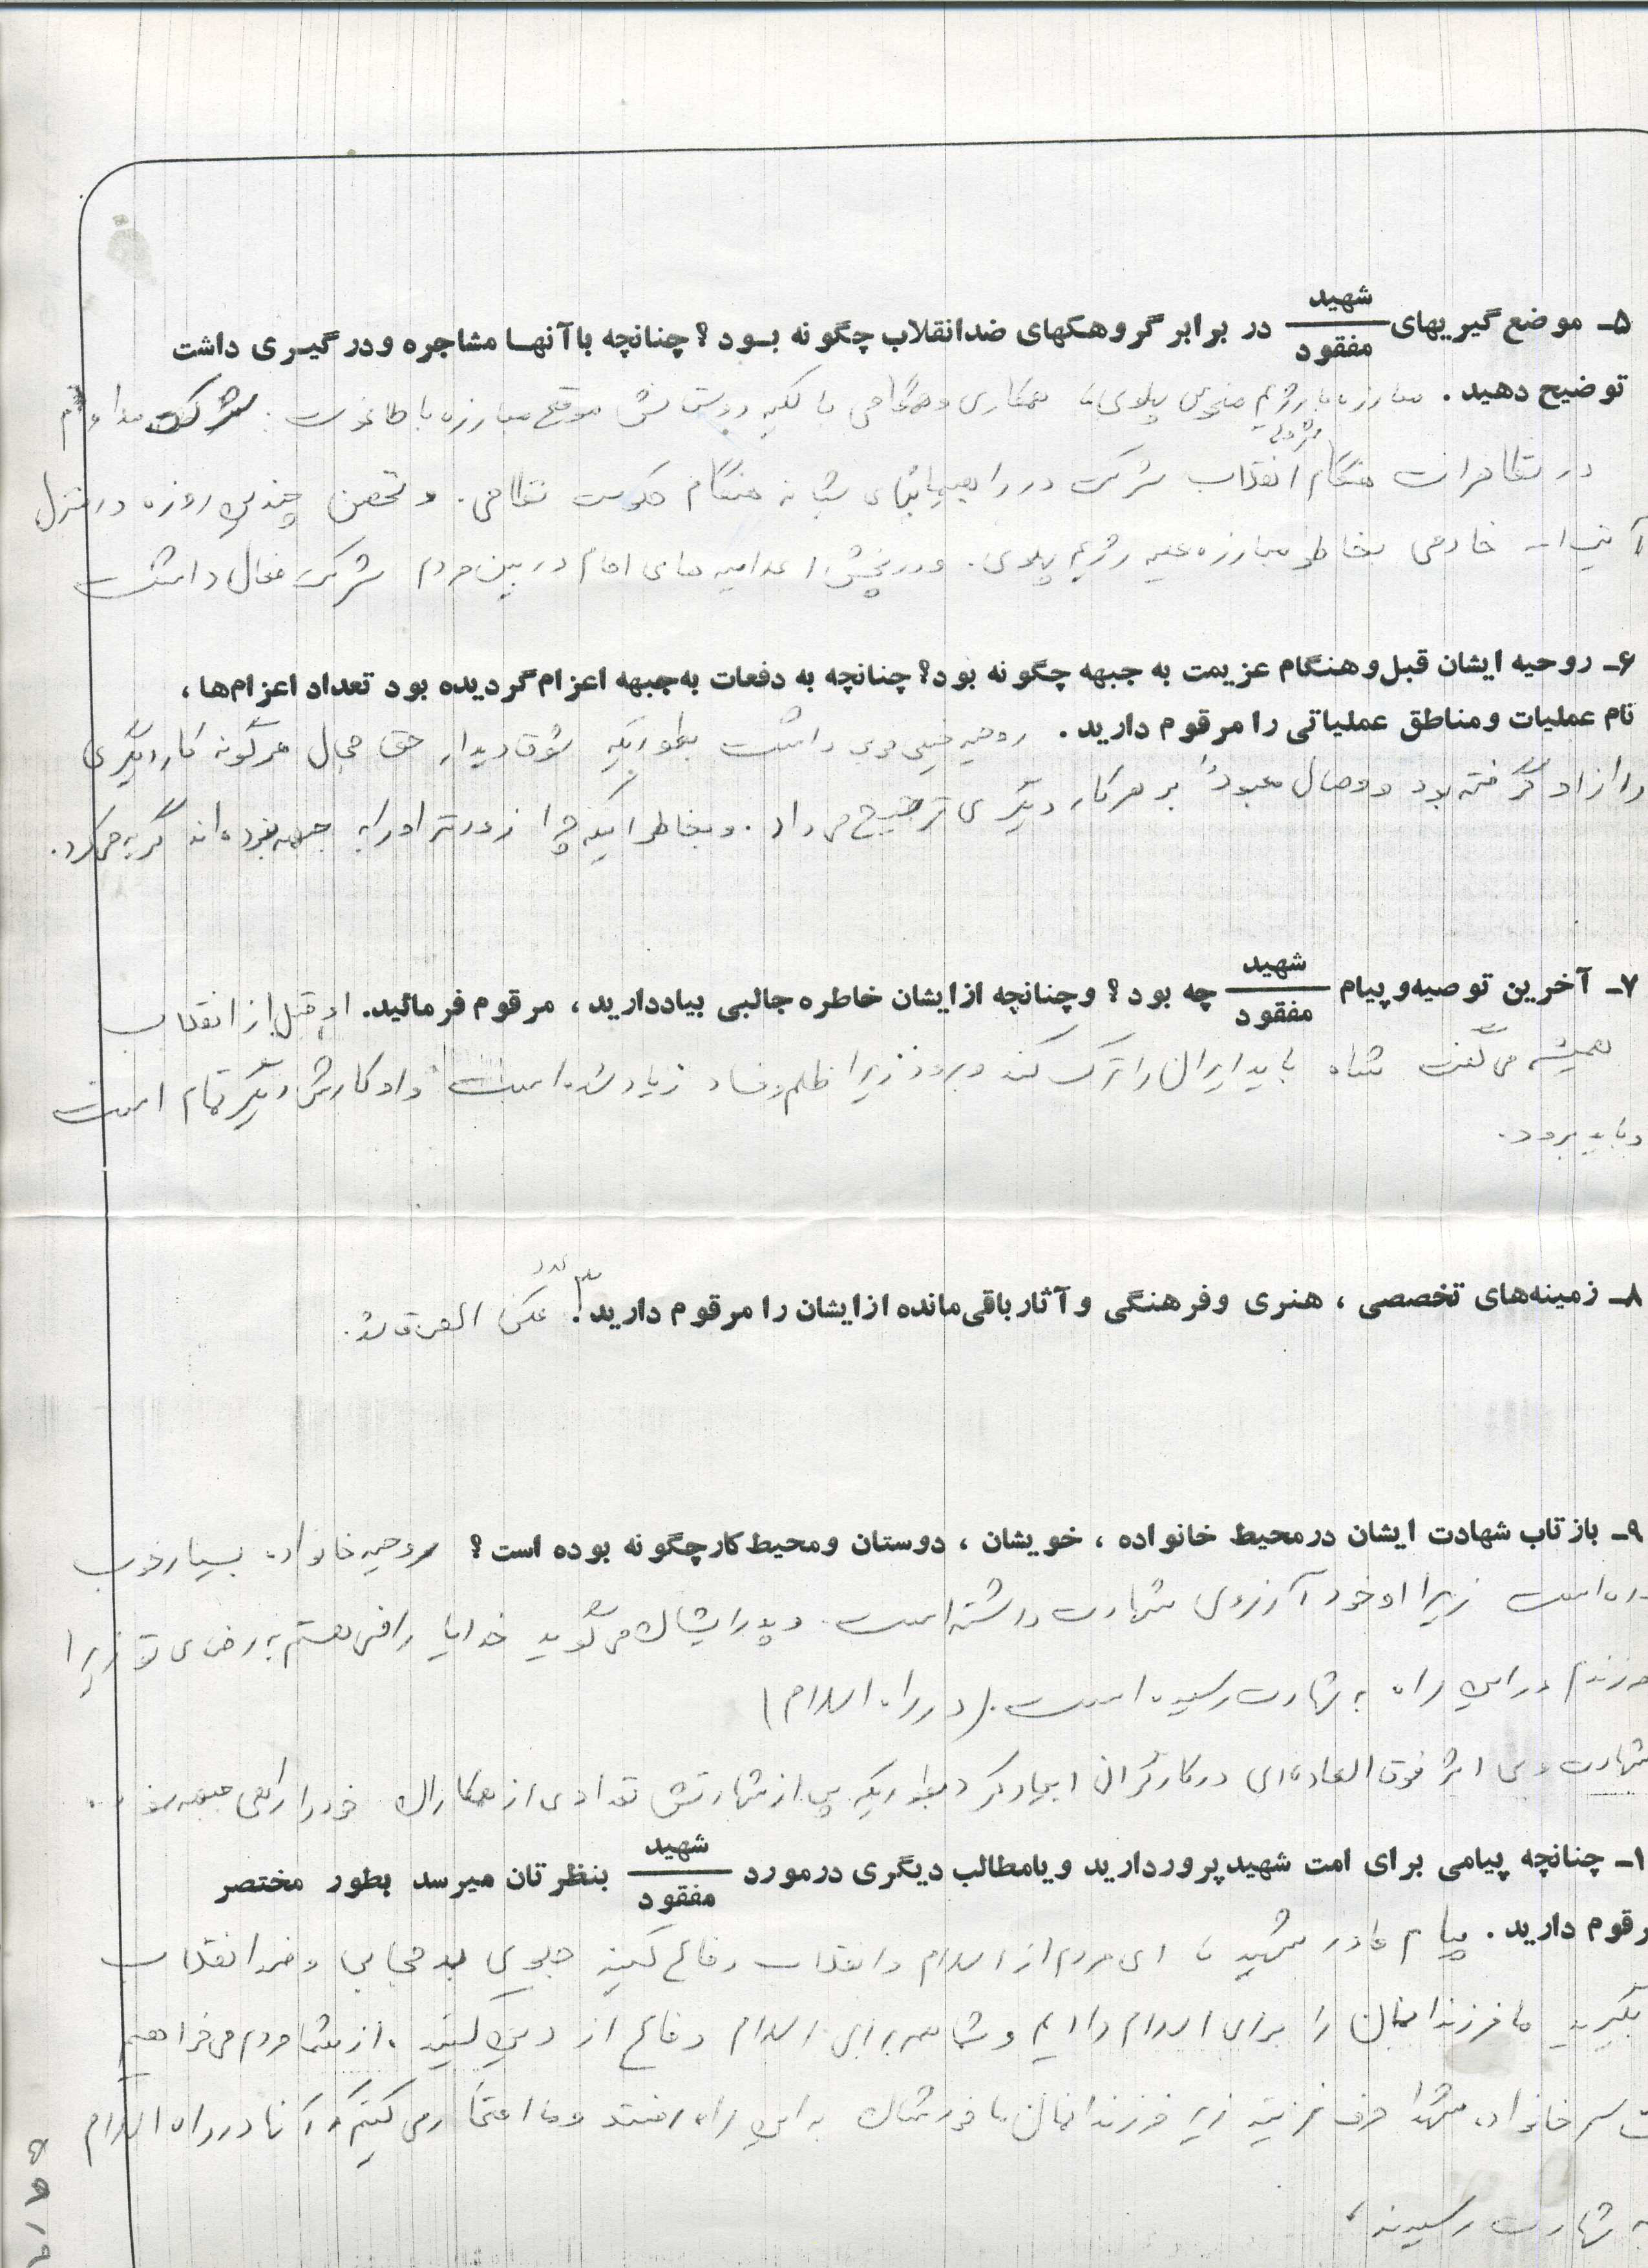 ۵ـ موضع گیریهای شهید / مفقود در برابر گروهکهای ضدانقلاب چگونه بود؟ چنانچه باآنها مشاجره ودرگیری داشت
توضیح دهید. مبارزه با رژیم منحوس پهلوی، همکاری و همگامی با کلیه دوستانش موقع مبارزه با طاغوت. شرکت مداوم
در تظاهرات هنگام انقلاب شرکت در راهپیمائیهای شبانه هنگام حکومت نظامی. و تحصن چندین روزه در منزل
آیت ا... خادمی بخاطر مبارزه علیه رژیم پهلوی. و در پخش اعلامیه های امام در بین مردم شرکت فعال داشت
۶ـ روحیه ایشان قبل وهنگام عزیمت به جبهه چگونه بود؟ چنانچه به دفعات به جبهه اعزام گردیده بود تعداد اعزام‌ها،
نام عملیات ومناطق عملیاتی را مرقوم دارید. روحیه خیلی قوی داشت بطوریکه شوق دیدار حق مجال هرگونه کار دیگری
را از او گرفته بود و وصال معبود را بر هر کار دیگری ترجیح می داد. و بخاطر اینکه چرا زودتر او را به جبهه نبرده اند گریه می کرد.
۷ـ آخرین توصیه وپیام شهید / مفقود چه بود؟ وچنانچه ازایشان خاطره جالبی بیاددارید، مرقوم فرمائید. او قبل از انقلاب
همیشه می گفت شاه باید ایران را ترک کند و برود زیرا ظلم و فساد زیاد شده است و او کارش دیگر تمام است
و باید برود.
۸ـ زمینه‌های تخصصی، هنری وفرهنگی وآثار باقی‌مانده ازایشان را مرقوم دارید. ۳ عدد عکس الصاق شد.
۹ـ بازتاب شهادت ایشان درمحیط خانواده، خویشان، دوستان ومحیط کارچگونه بوده است؟ روحیه خانواده بسیار خوب
زیرا او خود آرزوی شهادت داشته است. و پدر ایشان می گوید خدایا راضی هستم به رضای تو زیرا
فرزندم در این راه به شهادت رسیده است. (در راه اسلام)
شهادت وی اثر فوق العاده ای در کارگران ایجاد کرد بطوریکه پس از شهادتش تعدادی از همکاران خود را راهی جبهه
۱ـ چنانچه پیامی برای امت شهیدپروردارید ویامطالب دیگری درمورد شهید / مفقود بنظرتان میرسد بطور مختصر
رقوم دارید. پیام مادر شهید، ای مردم از اسلام و انقلاب دفاع کنید جلوی بدحجابی و ضد انقلاب
بگیرید ما فرزندانمان را برای اسلام دادیم و شما همه برای اسلام دفاع از دین کنید، از شما مردم می خواهیم
سر خانواده شهدا حرف نزنید زیرا فرزندانمان با خودشان به این راه رفتند و ما افتخار می کنیم که آنها در راه اسلام
به شهادت رسیدند.